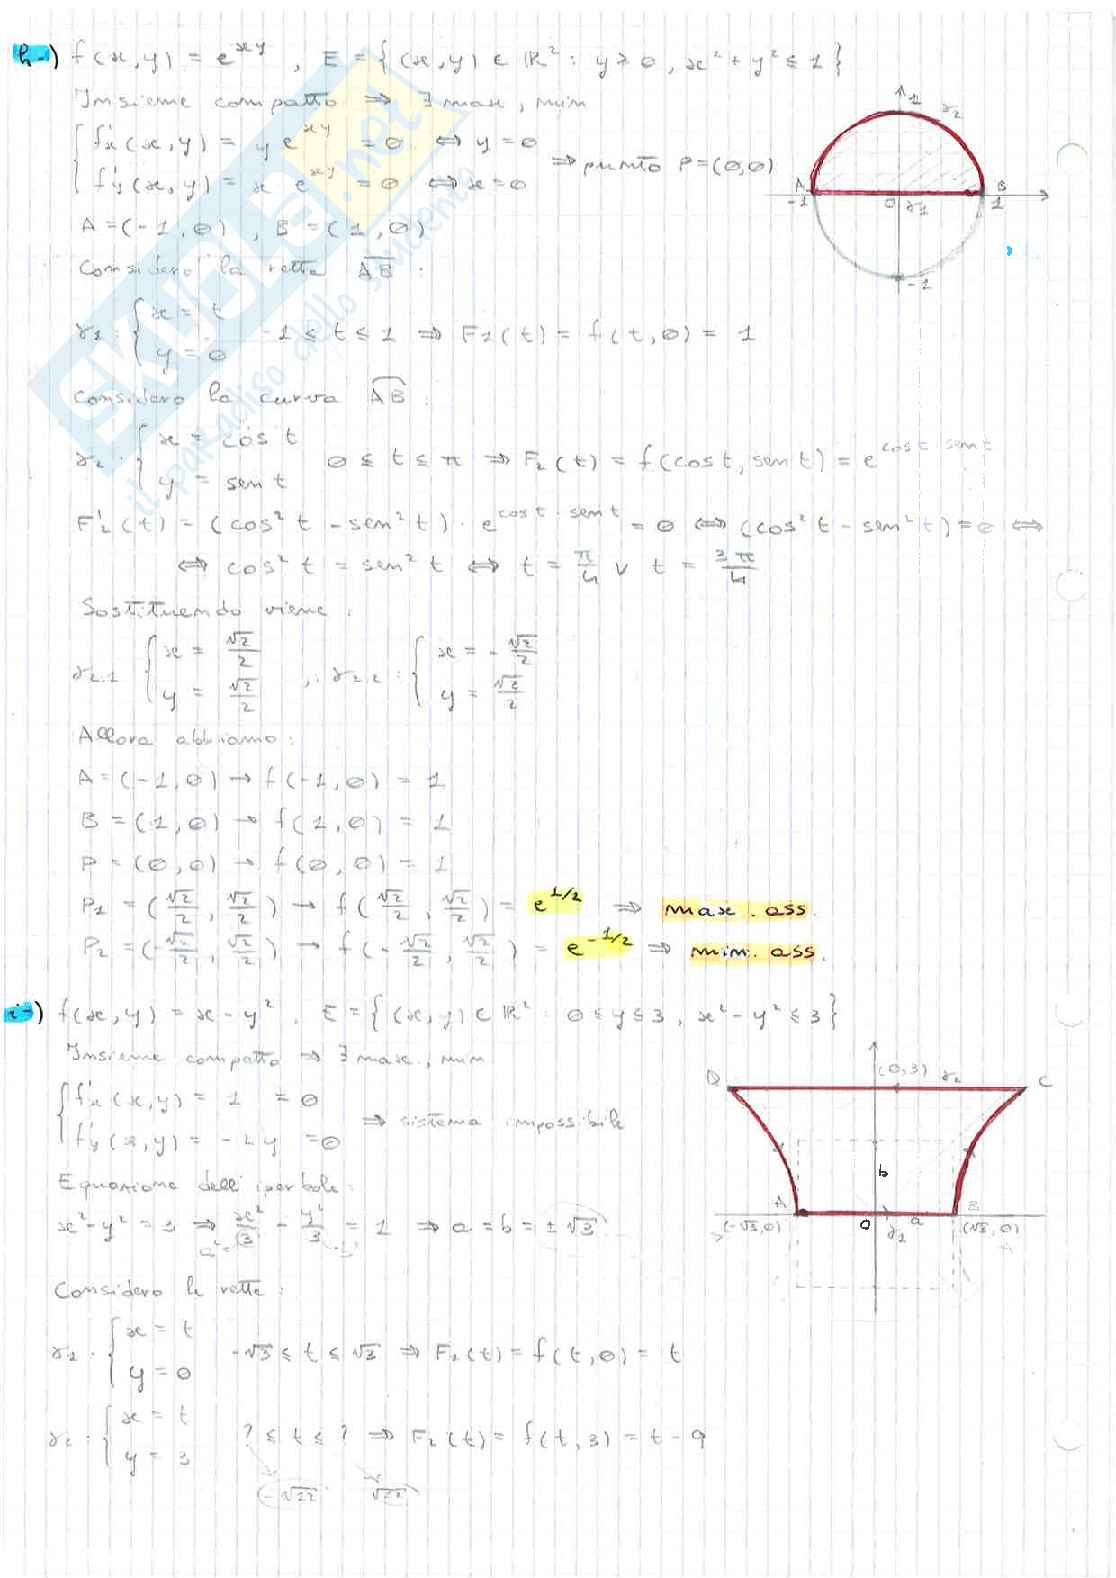 h-) f(x,y) = e^{xy} , E = { (x,y) ∈ ℝ² : y ≥ 0 , x² + y² ≤ 1 }
Insieme compatto ⇒ ∃ max, min
{ f'x (x,y) = y e^{xy} = 0 ⇔ y = 0
{ f'y (x,y) = x e^{xy} = 0 ⇔ x = 0
⇒ punto P = (0,0)
1 γ2
A B
-1 0 γ1 1
-1
A = (-1, 0) , B = (1, 0)
Considero la retta AB :
γ1 : { x = t
{ y = 0
-1 ≤ t ≤ 1 ⇒ F1(t) = f(t,0) = 1
Considero la curva AB :
γ2 : { x = cos t
{ y = sen t
0 ≤ t ≤ π ⇒ F2(t) = f(cos t, sen t) = e^{cos t · sen t}
F'2(t) = (cos² t - sen² t) · e^{cos t · sen t} = 0 ⇔ (cos² t - sen² t) = 0 ⇔
⇔ cos² t = sen² t ⇔ t = π/4 ∨ t = 3π/4
Sostituendo viene :
γ2.1 { x = √2/2
{ y = √2/2
, γ2.2 : { x = - √2/2
{ y = √2/2
Allora abbiamo :
A = (-1, 0) → f(-1, 0) = 1
B = (1, 0) → f(1, 0) = 1
P = (0, 0) → f(0, 0) = 1
P1 = (√2/2 , √2/2) → f(√2/2 , √2/2) = e^{1/2} ⇒ max. ass.
P2 = (-√2/2 , √2/2) → f(-√2/2 , √2/2) = e^{-1/2} ⇒ min. ass.
i-) f(x,y) = x - y² , E = { (x,y) ∈ ℝ² : 0 ≤ y ≤ 3 , x² - y² ≤ 3 }
Insieme compatto ⇒ ∃ max, min
{ f'x (x,y) = 1 = 0
{ f'y (x,y) = - 2y = 0
⇒ sistema impossibile
D (0,3) γ2 C
b
A B
(-√3,0) 0 γ1 a (√3,0)
Equazione dell'iperbole :
x² - y² = 3 ⇒ x²/3 - y²/3 = 1 ⇒ a = b = ± √3
Considero le rette :
γ1 : { x = t
{ y = 0
-√3 ≤ t ≤ √3 ⇒ F1(t) = f(t,0) = t
γ2 : { x = t
{ y = 3
? ≤ t ≤ ? ⇒ F2(t) = f(t,3) = t - 9
-√12 √12
SKUOLA.net
il paradiso dello studente